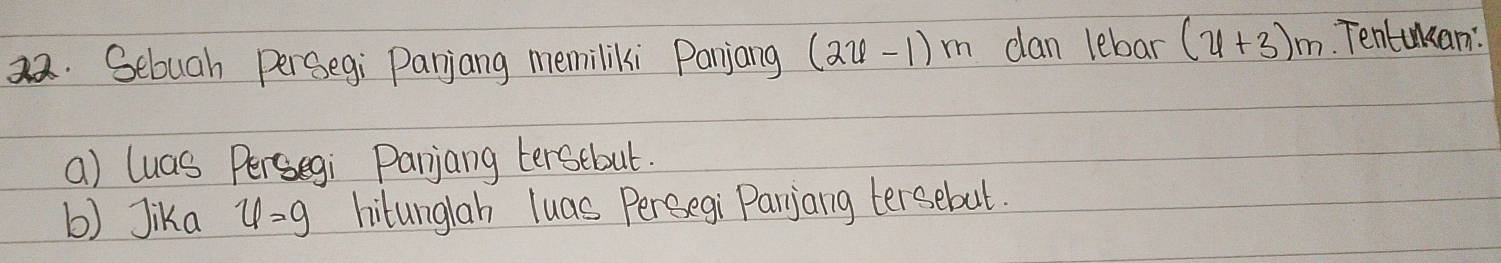 22. Sebuah persegi Panjang memiliki Panjang (2y - 1) m dan lebar (y + 3) m. Tentukan:
a) luas Persegi Panjang tersebut.
b) Jika y = 9 hitunglah luas Persegi Panjang tersebut.